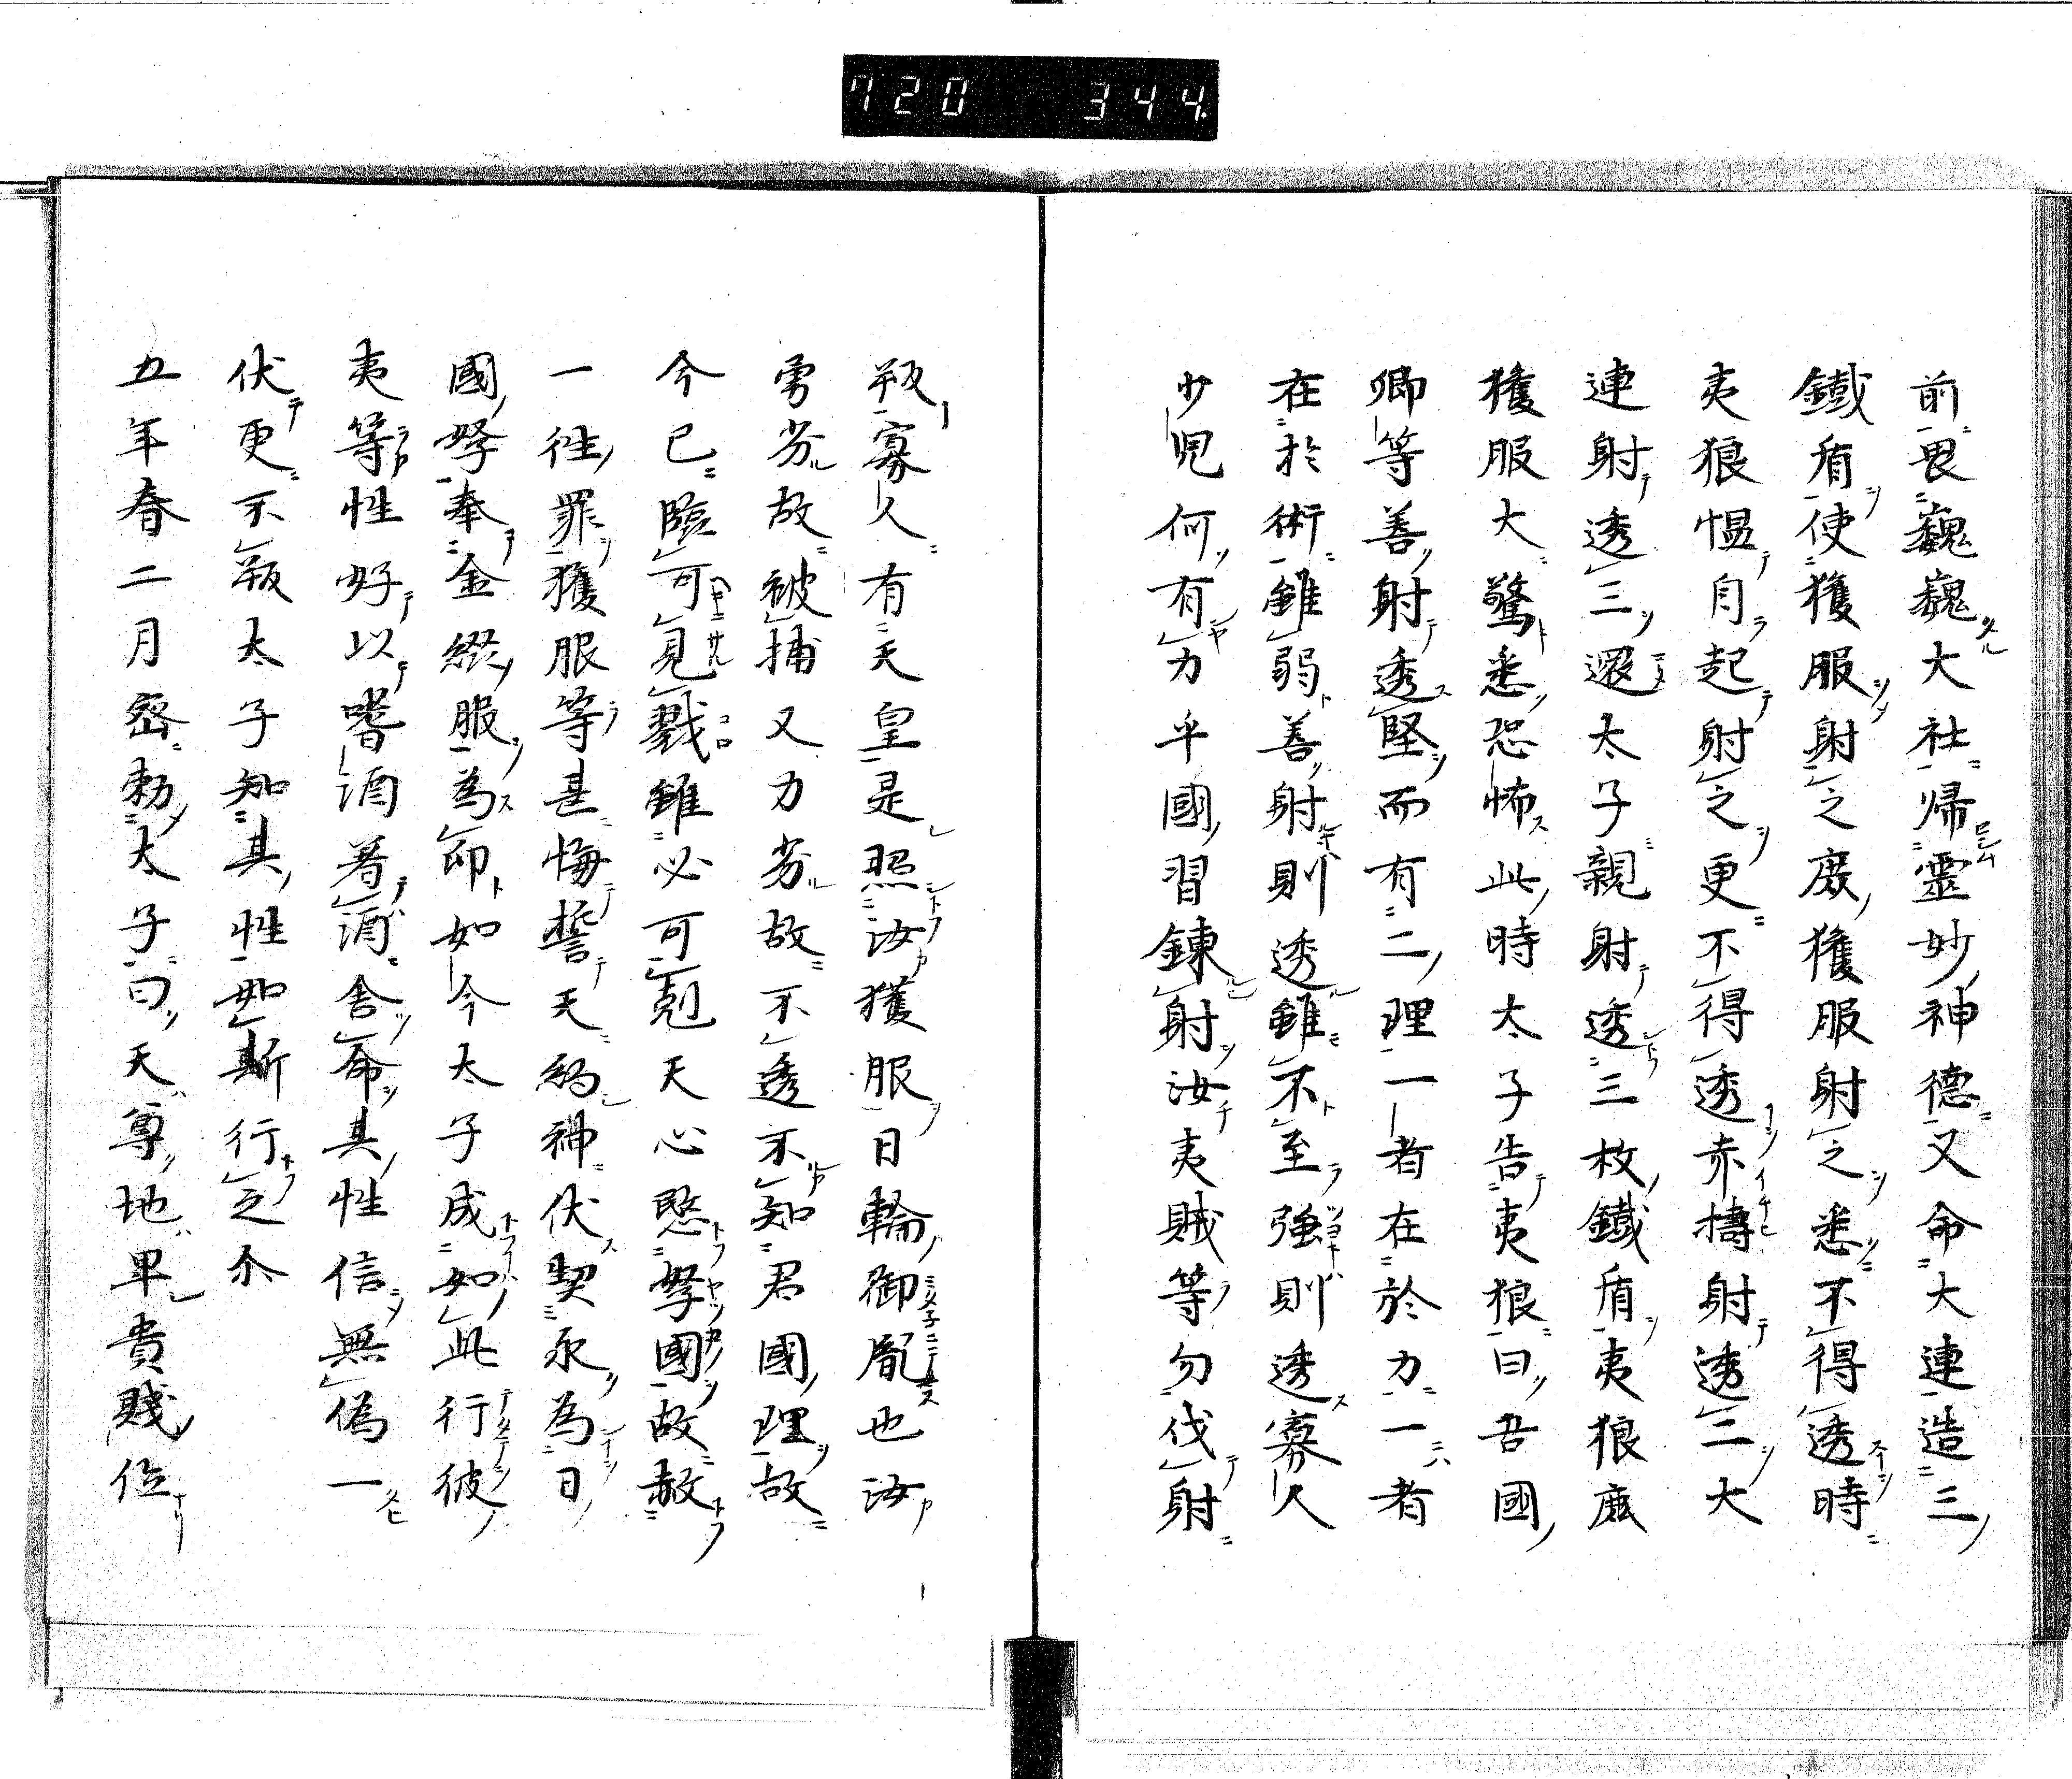 720 344
前畏巍巍大社帰靈妙神德又命大連造三
鐵盾使獲服射之麼獲服射之悉不得透時
夷狼愠自起射之更不得透赤檮射透二大
連射透三還太子親射透三枚鐵盾夷狼麼
獲服大驚悉恐怖此時太子告夷狼曰吾國
卿等善射透堅而有二理一者在於力一者
在於術雖弱善射則透雖不至強則透寡人
少児何有力乎國習錬射汝夷賊等勿伐射
叛寡人有天皇是照汝獲服日輪御胤也汝
勇劣故被捕又力劣故不透不知君國理故
今已臨可見戮雖必可剋天心愍孥國故赦
一往罪獲服等甚悔誓天約神伏契永為日
國孥奉金綴服為印如今太子成如此行彼
夷等性好以嗜酒着酒舎命其性信無偽一
伏更不叛太子知其性如斯行之尒
五年春二月密勅太子曰天尊地卑貴賤位